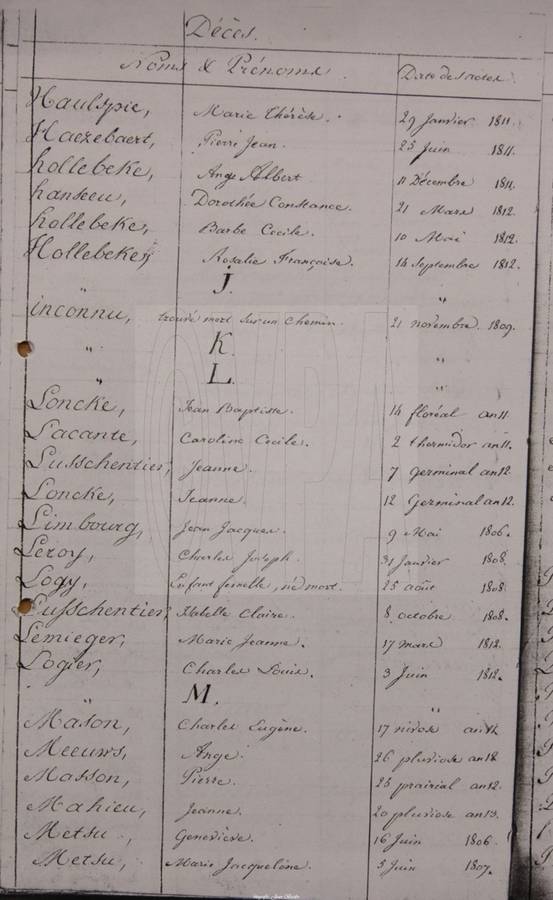 Décès.
Noms & Prénoms Date des actes.
Haulspie, Marie Thérèse. 29 Janvier 1811.
Haezebaert, Pierre Jean. 25 Juin 1811.
hollebeke, Ange Albert 11 Décembre 1811.
hanseeu, Dorothée Constance. 21 Mars 1812.
hollebeke, Barbe Cecile. 10 Mai 1812.
Hollebeke, Rosalie Françoise. 14 Septembre 1812.
" J. "
inconnu, trouvé mort sur un chemin. 21 novembre 1809.
" K. "
" L. "
Loncke, Jean Baptiste. 14 floréal an 11.
Lacante, Caroline Cecile. 2 thermidor an 11.
Lusschentier, Jeanne. 7 germinal an 12.
Loncke, Jeanne. 12 Germinal an 12.
Limbourg, Jean Jacques. 9 Mai 1806.
Leroy, Charles Joseph. 31 Janvier 1808.
Logy, Enfant femelle, né mort. 25 août 1808.
Lusschentier, Isabelle Claire. 8 octobre 1808.
Lemieger, Marie Jeanne. 17 mars 1812.
Logier, Charles Louis. 3 Juin 1812.
" M. "
Mason, Charles Eugène. 17 nivose an 12.
Meeuws, Ange. 26 pluviose an 12.
Masson, Pierre. 25 prairial an 12.
Mahieu, Jeanne. 20 pluviose an 13.
Metsu, Geneviève. 16 Juin 1806.
Metsu, Marie Jacqueline. 5 Juin 1807.